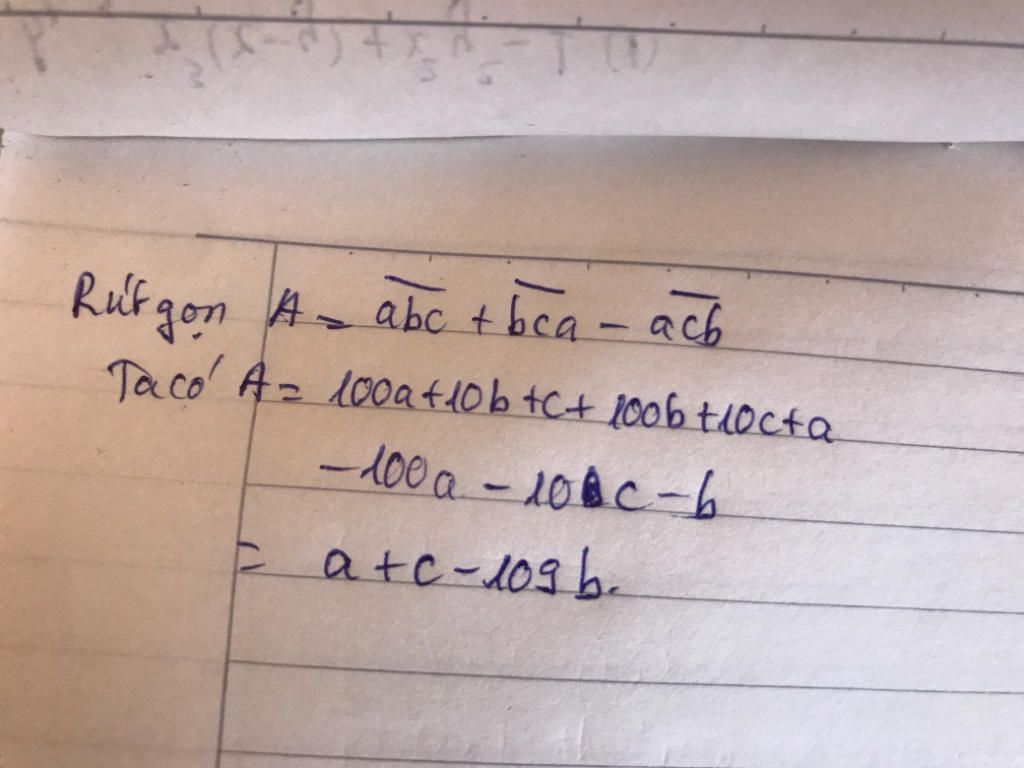 Rút gọn A = abc + bca - acb
Ta có A = 100a+10b+c+100b+10c+a
-100a - 10c - b
= a+c-109b.